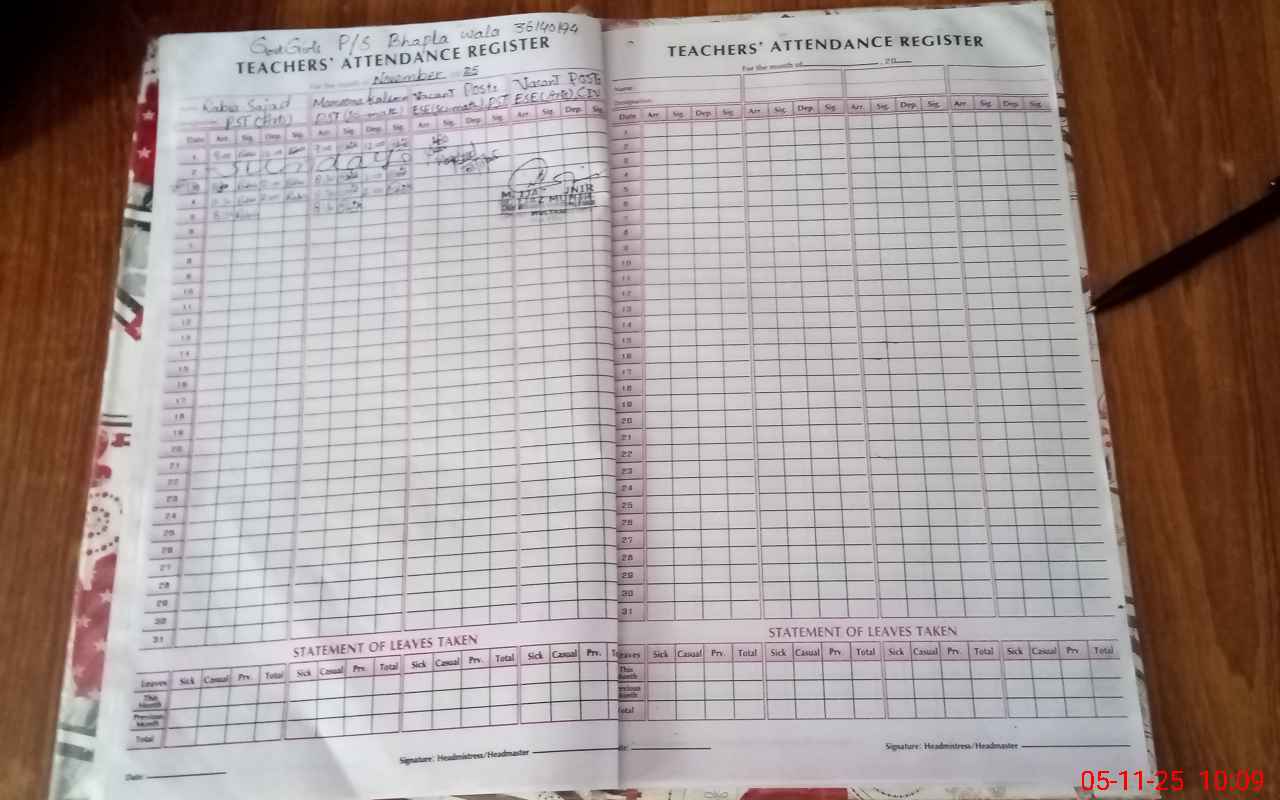 Govt Girls P/S Bhapla wala 36140194
TEACHERS' ATTENDANCE REGISTER
For the month of November 25
Rabia Sajad
PST (Arts)
Vacant Posts
ESE (Sci-math) PST
Vacant Posts
ESE (Arts)
Date Arr. Sig. Dep. Sig. Arr. Sig. Dep. Sig. Arr. Sig. Dep. Sig. Arr. Sig. Dep. Sig.
1
2
Sunday
3
4
5
6
7
8
9
10
11
12
13
14
15
16
17
18
19
20
21
22
23
24
25
26
27
28
29
30
31
STATEMENT OF LEAVES TAKEN
Leaves Sick Casual Prv. Total Sick Casual Prv. Total Sick Casual Prv. Total Sick Casual Prv.
This Month
Previous Month
Total
Signature: Headmistress/Headmaster
Date:
TEACHERS' ATTENDANCE REGISTER
For the month of , 20
Name:
Designation
Date Arr. Sig. Dep. Sig. Arr. Sig. Dep. Sig. Arr. Sig. Dep. Sig. Arr. Sig. Dep. Sig.
1
2
3
4
5
6
7
8
9
10
11
12
13
14
15
16
17
18
19
20
21
22
23
24
25
26
27
28
29
30
31
STATEMENT OF LEAVES TAKEN
Leaves Sick Casual Prv. Total Sick Casual Prv. Total Sick Casual Prv. Total Sick Casual Prv. Total
This Month
Previous Month
Total
Signature: Headmistress/Headmaster
05-11-25 10:09